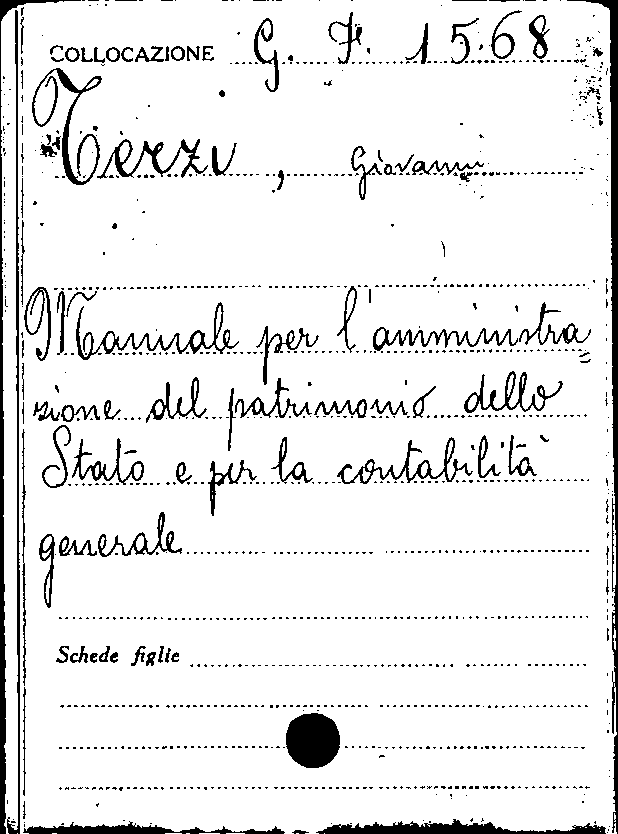 COLLOCAZIONE G. F. 15.68
Terzi, Giovanni
Manuale per l'amministra=
zione del patrimonio dello
Stato e per la contabilità
generale
Schede figlie